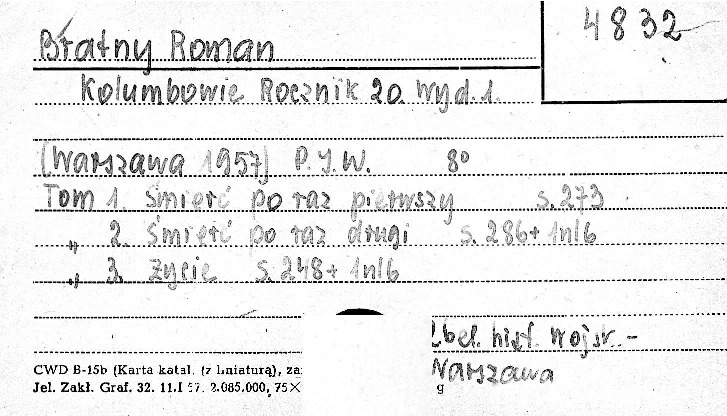 4832
Bratny Roman
Kolumbowie Rocznik 20. Wyd. 1.
(Warszawa 1957) P.I.W. 8°
Tom 1. Śmierć po raz pierwszy s. 273
„ 2. Śmierć po raz drugi s. 286 + 1nlb
„ 3. Życie s. 248 + 1nlb
Zbel. hist. wojsk. -
Warszawa
CWD B-15b (Karta katal. (z liniaturą), za
Jel. Zakł. Graf. 32. 11.I 57. 2.085.000, 75×
g